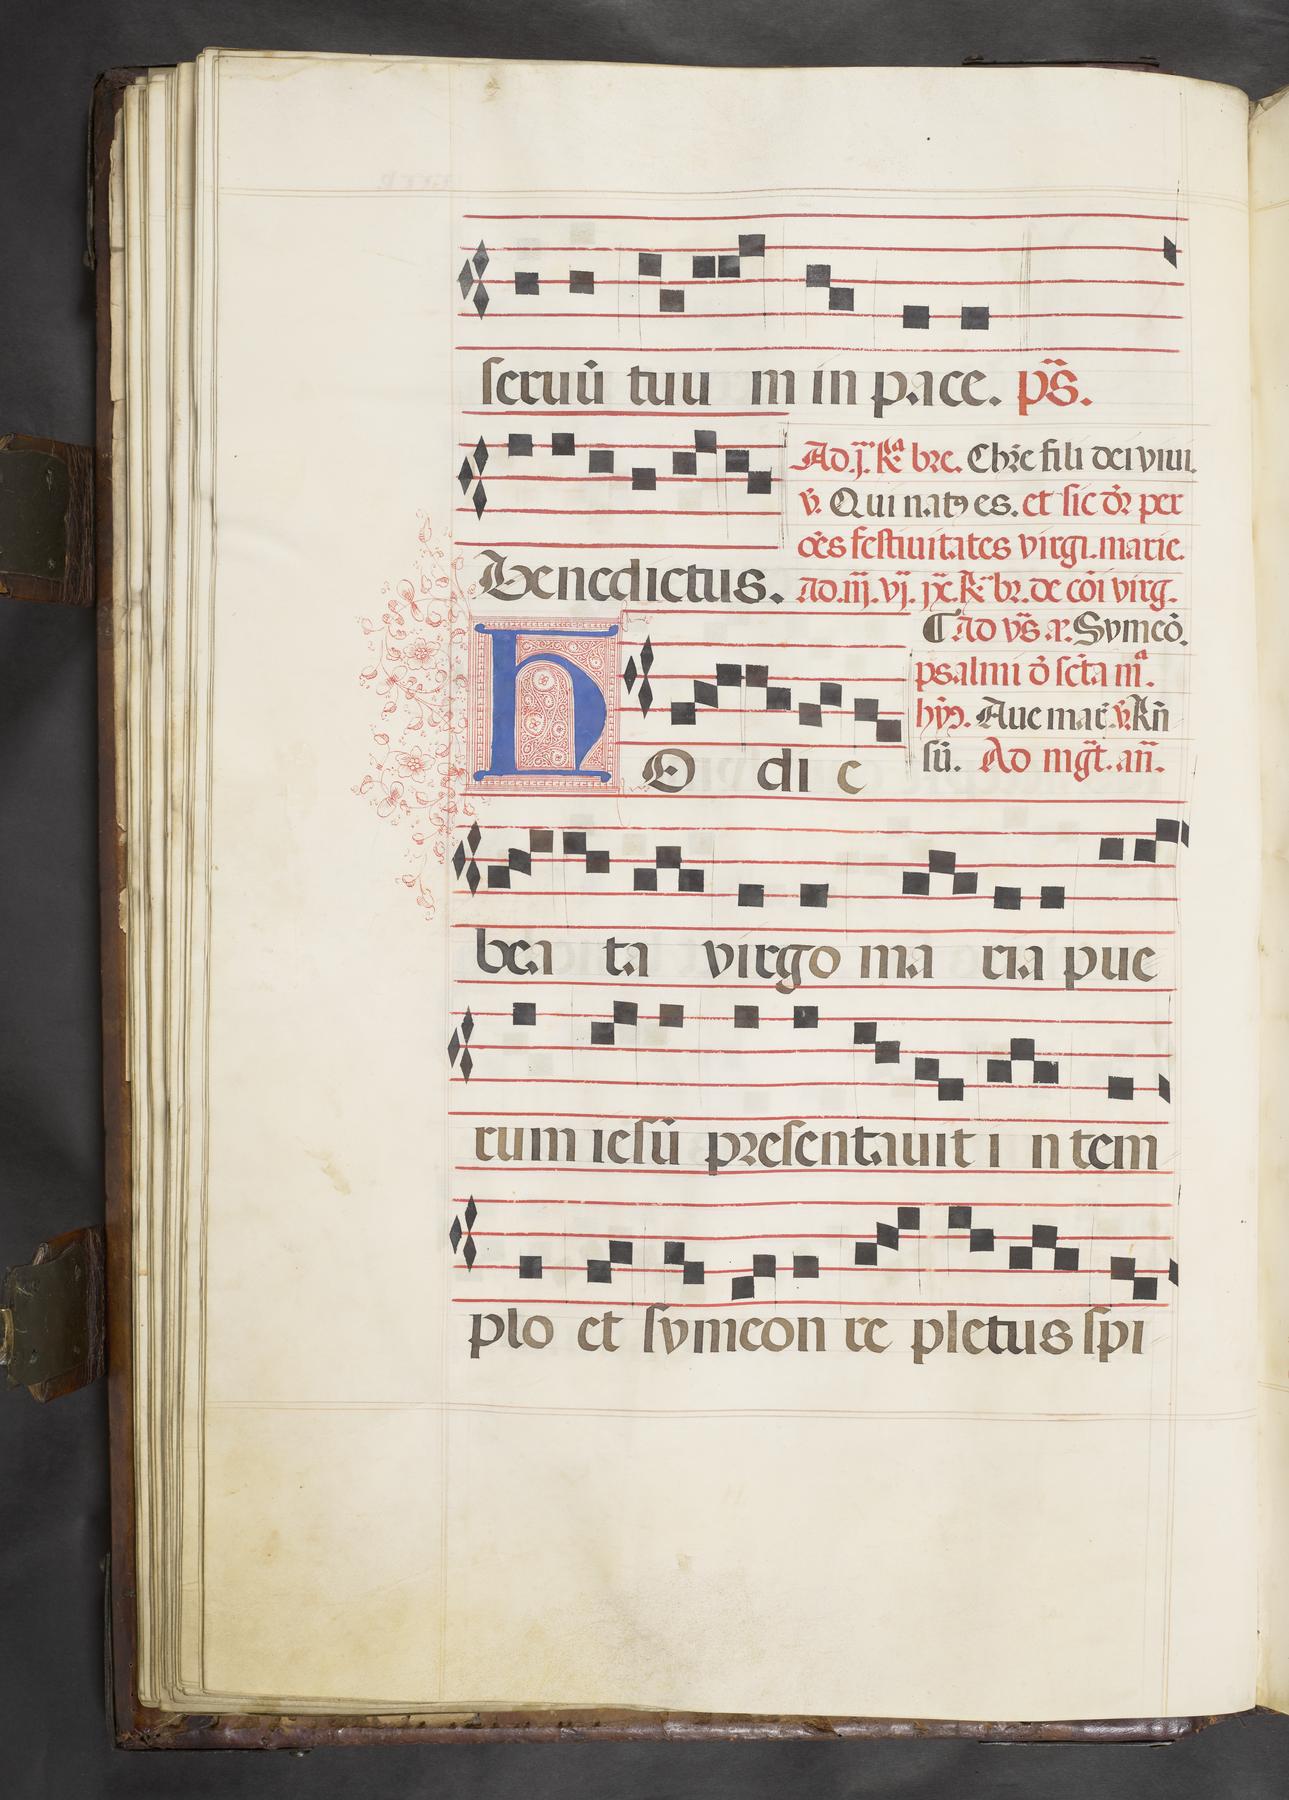 seruū tuu m in pace. ps̄.
Ad .j. R̄a bre. Chr̄e fili dei viui.
v̄. Qui natꝰ es. et sic dr̄ per
oēs festiuitates virgi. marie.
Benedictus. Ad .iij. vj. jx. R̄ br. de cōi virg.
¶ Ad vs̄ ar. Symeō.
psalmi ō scta m̄a.
hym̄. Aue mar̄. v̄. R̄n̄
H O di e sū. Ad mgt̄. an̄.
bea ta virgo ma ria pue
rum iesū presentauit i n tem
plo et symeon re pletus spi